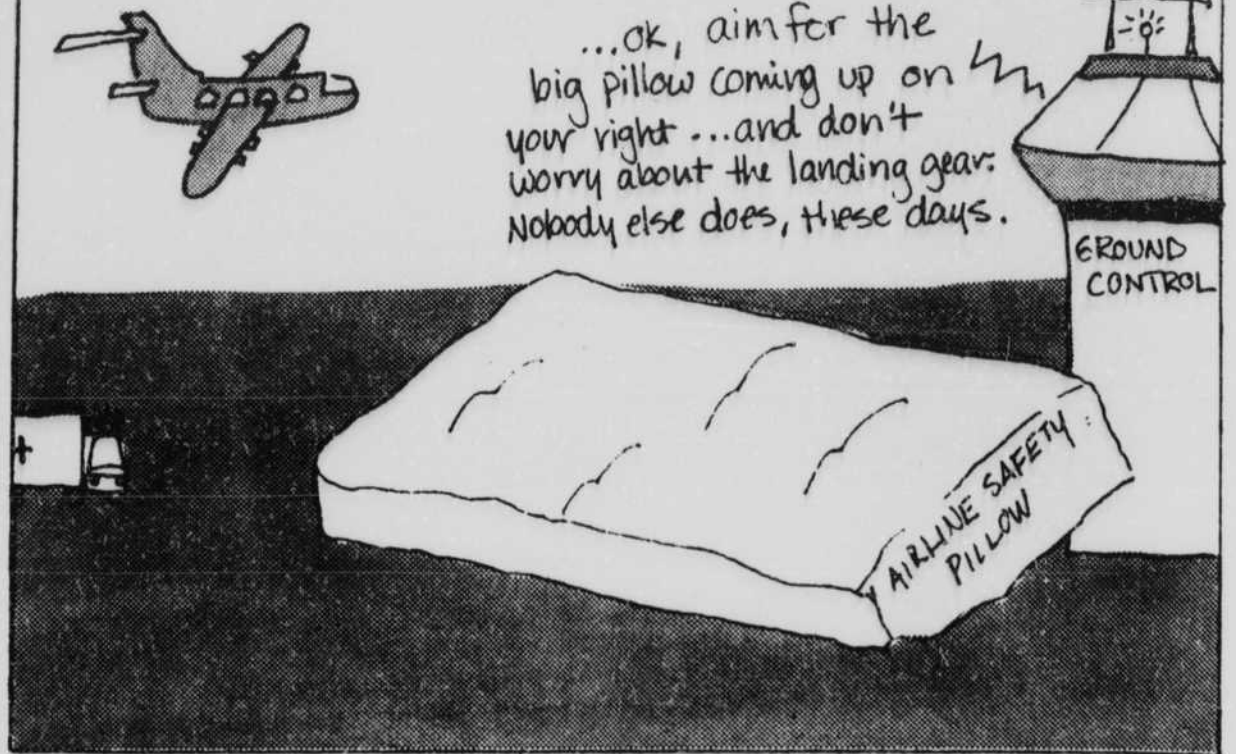 ...ok, aim for the
big pillow coming up on
your right...and don't
worry about the landing gear.
Nobody else does, these days.
GROUND
CONTROL
AIRLINE SAFETY
PILLOW